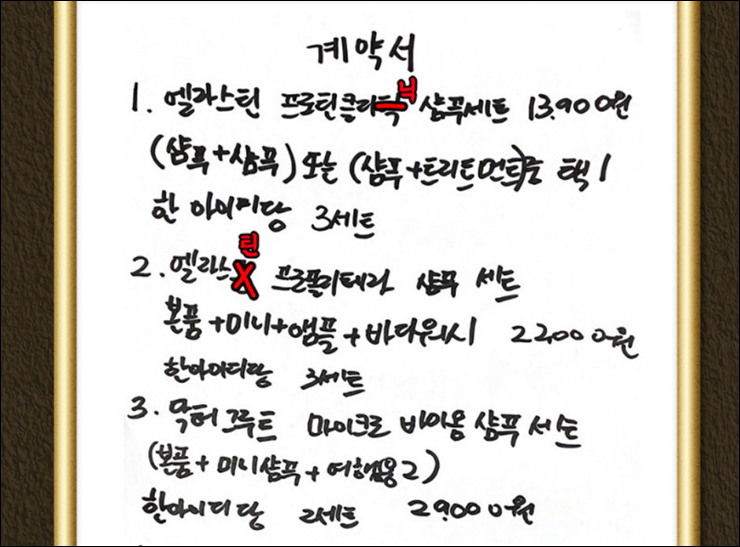 계약서
1. 엘라스틴 프로틴클리닉 샴푸세트 13,900원
(샴푸+샴푸) 또는 (샴푸+트리트먼트)중 택1
한 아이디당 3세트
2. 엘라스틴 프로폴리테라 샴푸 세트
본품+미니+앰플+바디워시 22,000원
한아이디당 3세트
3. 닥터그루트 마이크로 바이옴 샴푸 세트
(본품+미니샴푸+여행용2)
한아이디당 2세트 29,000원